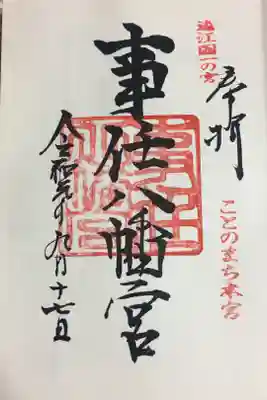 奉拝
遠江国一の宮
ことのまち本宮
事任八幡宮
令和元年九月十七日